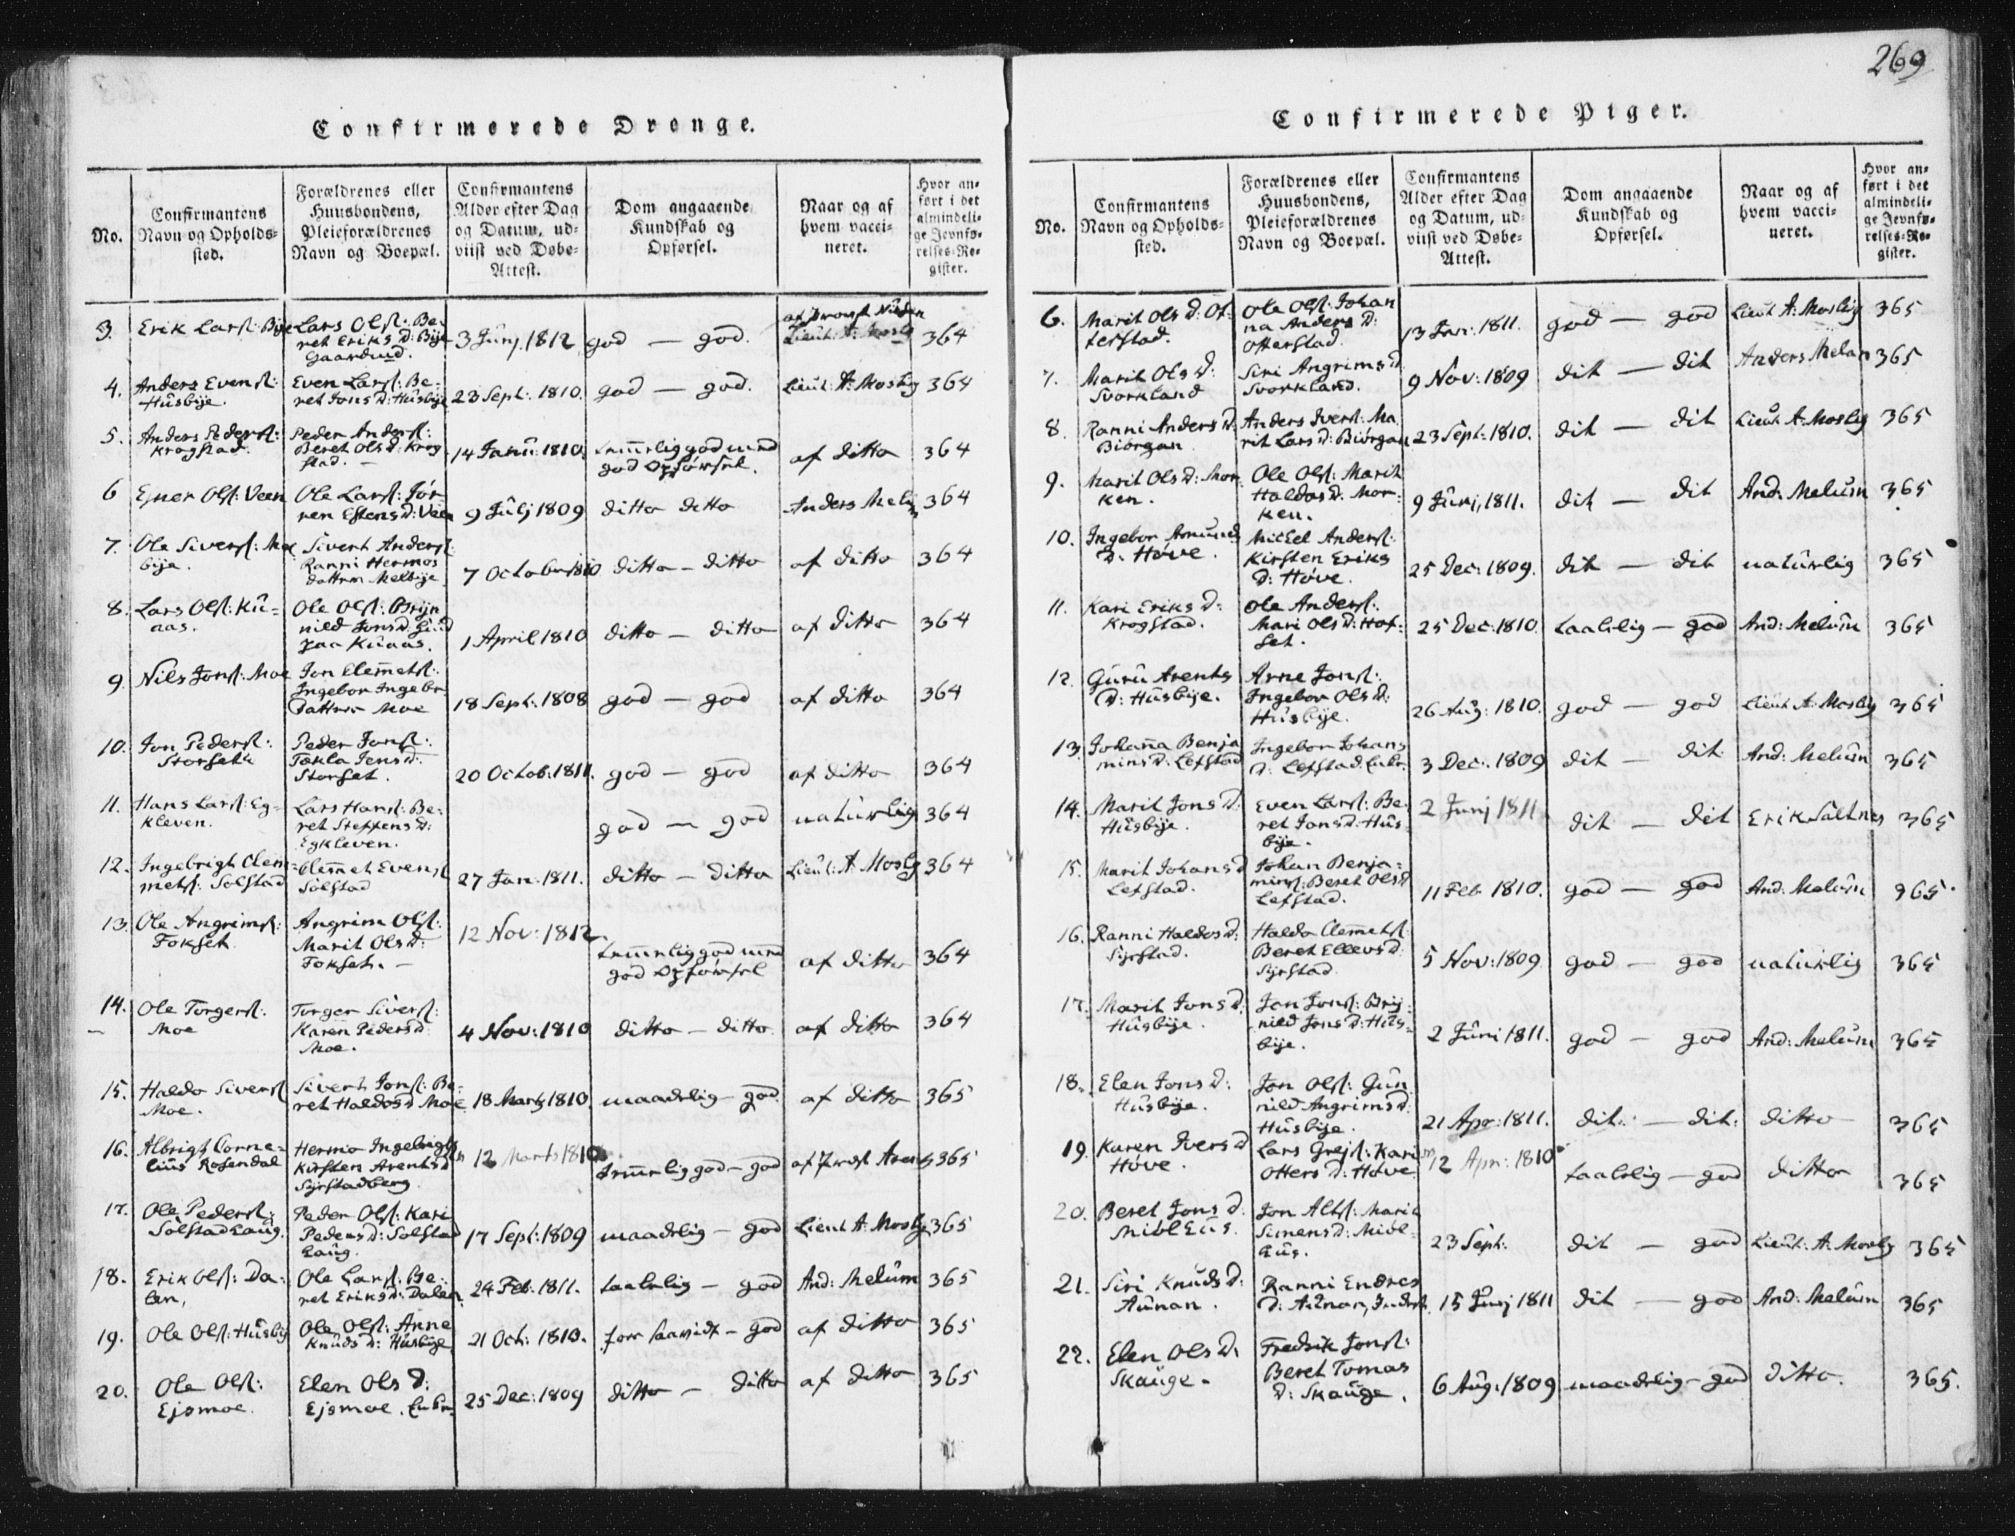 269
Confirmerede Drenge.
No.
Confirmantens
Navn og Opholds-
sted.
Forældrenes eller
Huusbondens,
Pleieforældrenes
Navn og Boepæl.
Confirmantens
Alder efter Dag
og Datum, ud-
viist ved Døbe-
Attest.
Dom angaaende
Kundskab og
Opførsel.
Naar og af
hvem vacci-
neret.
Hvor an-
ført i det
almindeli-
ge Jevnfø-
relses-Re-
gister.
3. Erik Larss: Bye
Lars Olss: Be-
ret Eriksd: Bye
Gaardend.
3 Junj 1812
god — god.
af Provst
Lieut: A: Mosby
364
4. Anders Evens:
Husbye.
Even Larss: Be-
ret Jonsd: Husbye
23 Sept: 1810.
god — god.
Lieut: A: Mosby
364
5. Anders Peders:
Krogstad.
Peder Anders:
Beret Olsd: Krog
stad. —
14 Janu: 1810.
temmelig god med
god Opførsel.
af ditto
364
6 Ejner Olss: Veen
Ole Larss: Jør-
ren Estensd: Veen
9 Julj 1809
ditto ditto
Anders Melu
364
7. Ole Siverss: Mel
bye.
Sivert Anders:
Ranni Hermos
datter Melbye
7 October 1810
ditto — ditto
af ditto
364
8. Lars Olss: Ku-
aas.
Ole Olss: Bryn
nild Jonsd:
paa Kuaas.
1 April 1810
ditto — ditto
af ditto
364
9 Nils Jonss: Moe
Jon Clemets:
Ingebor Ingebr
Datter Moe
18 Sept: 1808
god — god
af ditto
364
10. Jon Peders:
Storset
Peder Jons:
Tækla Jensd:
Storset.
20 Octob: 1811.
god — god
af ditto
364
11. Hans Larss: Eg-
kleven.
Lars Hans: Be-
ret Steffensd:
Egkleven.
god — god
naturlig
364
12. Ingebrigt Clem-
mets: Solstad
Clemmet Evens
Solstad
27 Jan: 1811.
ditto — ditto
Lieut: A Mosby
364
13. Ole Angrims:
Fokset
Angrim Olss:
Marit Olsd:
Fokset. —
12 Nov: 1812
temmelig god med
god Opførsel
af ditto
364
14. Ole Torgers:
Moe
Torger Sivers:
Karen Pedersd
Moe.
4 Nov: 1810
ditto — ditto
af ditto
364
15. Haldo Siverss
Moe.
Sivert Jons: Be-
ret Haldosd Moe
18 Marts 1810.
maadelig — god.
af ditto
365
16. Albrigt Corne-
lius Rosendal
Hermo Ingebrigts
Kirsten Arentsd
Syrstadberg
12 Marts 1810
temmelig god — god
af Provst Arentz
365
17. Ole Peders:
Solstadlaug.
Peder Olss: Kari
Pedersd: Solstad
laug.
17 Sept: 1809
maadelig — god
Lieut A: Mosby
365
18. Erik Olss: Da-
len,
Ole Larss: Be-
ret Eriksd: Dalen
24 Feb: 1811.
taalelig — god
And: Melum
365
19. Ole Olss: Husby
Ole Olss: Anne
Knudsd: Husbye
21 Oct: 1810.
— god
af ditto
365
20. Ole Olss:
Ejsmoe.
Elen Olsd:
Ejsmoe.
25 Dec: 1809
ditto — ditto
af ditto
365
Confirmerede Piger.
No.
Confirmantens
Navn og Opholds-
sted.
Forældrenes eller
Huusbondens,
Pleieforældrenes
Navn og Boepæl.
Confirmantens
Alder efter Dag
og Datum, ud-
viist ved Døbe-
Attest.
Dom angaaende
Kundskab og
Opførsel.
Naar og af
hvem vacci-
neret.
Hvor an-
ført i det
almindeli-
ge Jevnfø-
relses-Re-
gister.
6. Marit Olsd: Ot-
terstad.
Ole Olss: Johan
na Andersd:
Otterstad.
13 Jan: 1811.
god — god
Lieut A: Mosby
365
7. Marit Olsd:
Svorkland
Siri Angrimsd
Svorkland.
9 Nov: 1809
dit — dit
Anders Melan
365
8. Ranni Andersd:
Biørgan
Anders Ivers: Ma
rit Larsd: Biørgan
23 Sept: 1810.
dit — dit
Lieut A: Mosby
365
9. Marit Olsd: Mor
ken.
Ole Olss: Marit
Haldosd: Mor-
ken.
9 Juni, 1811.
dit — dit
And: Melum
365
10. Ingebor Amunds
D: Høve.
Mickel Anders:
Kirsten Eriks
D: Høve.
25 Dec: 1809.
dit — dit
naturlig
365
11. Kari Eriksd:
Krogstad.
Ole Anders:
Mari Olsd: Hof-
set.
25 Dec: 1810.
taalelig — god
And: Melum
365
12. Guru Arents
D: Husbye.
Arne Jons:
Ingebor Olsd:
Husbye.
26 Aug: 1810.
god — god
Lieut A: Mosby
365
13. Johanna Benja
minsd: Lefstad
Ingebor Johans
D: Lefstad
3 Dec: 1809
dit — dit
And: Melum
365
14. Marit Jonsd:
Husbye.
Even Larss: Be-
ret Jonsd: Hus-
bye.
2 Junj 1811.
dit — dit
Erik Saltnes
365
15. Marit Johansd
Lefstad.
Johan Benja-
mins: Beret Olsd
Lefstad.
11 Feb 1810.
god — god
And: Melum
365
16. Ranni Haldosd:
Syrstad.
Haldo Clemets
Beret Ellevsd:
Syrstad
5 Nov: 1809
god — god
naturlig
365
17. Marit Jonsd:
Husbye.
Jon Jons: Bry-
nild Jonsd: Hus-
bye.
2 Juni 1811.
god — god
And: Melum
365
18. Elen Jonsd:
Husbye.
Jon Olss: Gun
nild Angrimsd:
Husbye.
21 Apr: 1811.
dit: — dit:
ditto
365
19. Karen Iversd
Høve.
Lars Grejs: Kari
Ottersd: Høve
12 Apr: 1810
taalelig — god
ditto
365
20. Beret Jonsd:
Midlhus.
Jon Alts: Marit
Simensd: Midl-
hus.
23 Sept:
dit — god
Lieut: A: Mosby
365
21. Siri Knudsd:
Aunan.
Ranni Endres
D: Aunan,
15 Junj 1811
dit — god
And: Melum
365
22. Elen Olsd:
Skauge.
Fredrik Jons:
Beret Tomas
D: Skauge.
6 Aug: 1809
maadelig — god
ditto.
365.